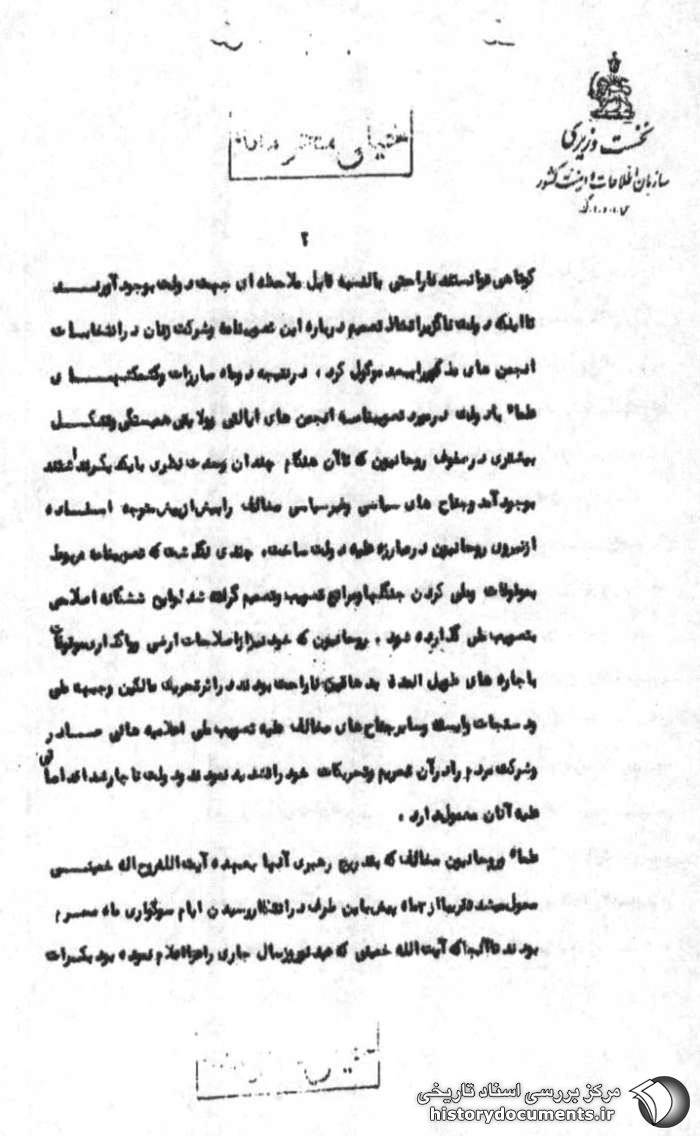 نخست وزیری
سازمان اطلاعات و امنیت کشور
س.ا.و.ا.ک
خیلی محرمانه
۲
کوتاهی توانستند ناراحتی بالنسبه قابل ملاحظه ای جهت دولت بوجود آورند
تا اینکه دولت ناگزیر اتخاذ تصمیم درباره این تصویبنامه و شرکت زنان در انتخابات
انجمن های مذکور را ببعد موکول کرد، در نتیجه دوماه مبارزات و کشمکشهای
علماء با دولت در مورد تصویبنامه انجمن های ایالتی و ولایتی همبستگی و تشکل
بیشتری در صفوف روحانیون که تا آن هنگام چندان وحدت نظری با یکدیگر نداشتند
بوجود آمد و جناح های سیاسی و غیر سیاسی مخالف را بیش از پیش متوجه استفاده
از نیروی روحانیون در مبارزه علیه دولت ساخت. چندی نگذشت که تصویبنامه مربوط
بموقوفات و ملی کردن جنگلها و مراتع تصویب و تصمیم گرفته شد لوایح ششگانه اصلاحی
بتصویب ملی گذارده شود. روحانیون که خود نیز از اصلاحات ارضی و واگذاری موقوفات
با جاره های طویل المدة بدهاقین ناراحت بودند در اثر تحریک مالکین و جبهه ملی
و دستجات وابسته و سایر جناح های مخالف علیه تصویب ملی اعلامیه هائی صادر
و شرکت مردم را در آن تحریم و تحریکات خود را تشدید نمودند و دولت ناچار شد اقداماتی
علیه آنان معمول دارد.
علماء و روحانیون مخالف که بتدریج رهبری آنها بعهده آیت الله روح اله خمینی
محول میشد تقریبا از ۳ ماه پیش باین طرف در انتظار رسیدن ایام سوگواری ماه محرم
بودند تا آنجا که آیت الله خمینی که عید نوروز سال جاری را عزا اعلام نموده بود بکرات
مرکز بررسی اسناد تاریخی
historydocuments.ir